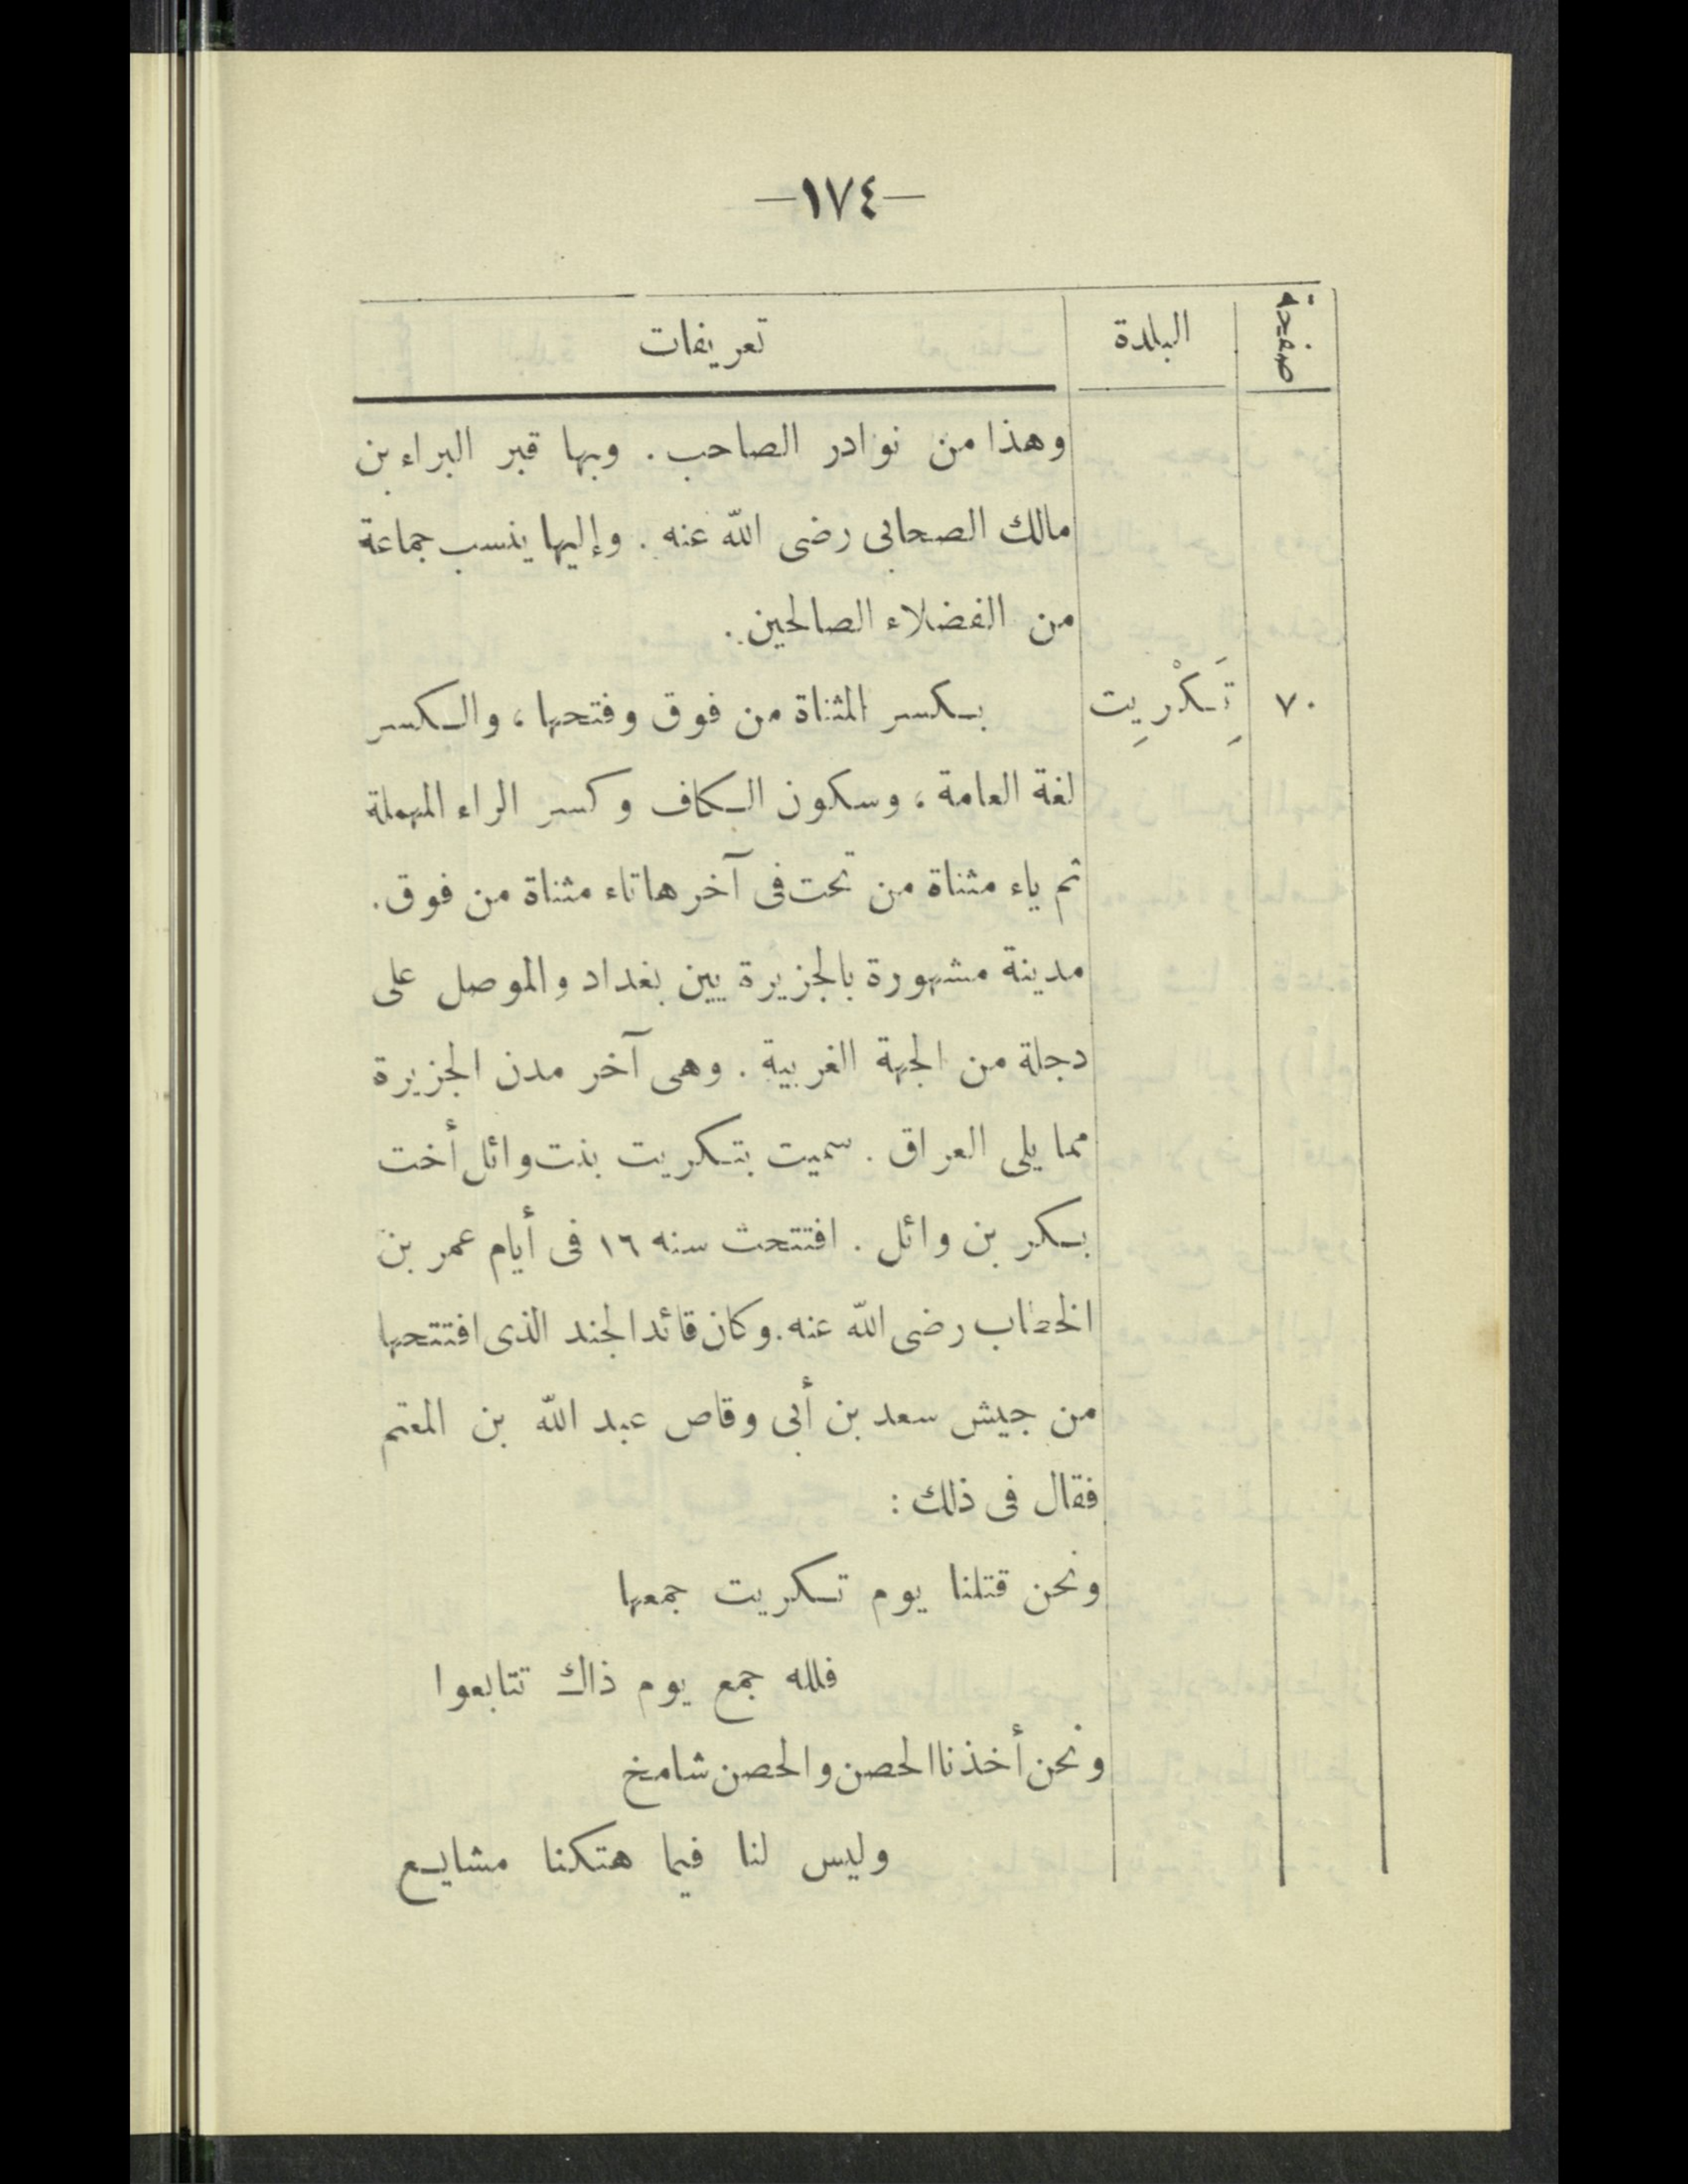 —١٧٤—
صفحة البلدة تعريفات
وهذا من نوادر الصاحب. وبها قبر البراء بن
مالك الصحابى رضى الله عنه. وإليها ينسب جماعة
من الفضلاء الصالحين.
٧٠ تَِكْرِيت بكسر المثناة من فوق وفتحها، والكسر
لغة العامة، وسكون الكاف وكسر الراء المهملة
ثم ياء مثناة من تحت فى آخرها تاء مثناة من فوق.
مدينة مشهورة بالجزيرة بين بغداد والموصل على
دجلة من الجهة الغربية. وهى آخر مدن الجزيرة
مما يلى العراق. سميت بتكريت بنت وائل أخت
بكر بن وائل. افتتحت سنه ١٦ فى أيام عمر بن
الخطاب رضى الله عنه. وكان قائد الجند الذى افتتحها
من جيش سعد بن أبى وقاص عبد الله بن المعتم
فقال فى ذلك:
ونحن قتلنا يوم تكريت جمعها
فلله جمع يوم ذاك تتابعوا
ونحن أخذنا الحصن والحصن شامخ
وليس لنا فيما هتكنا مشايع